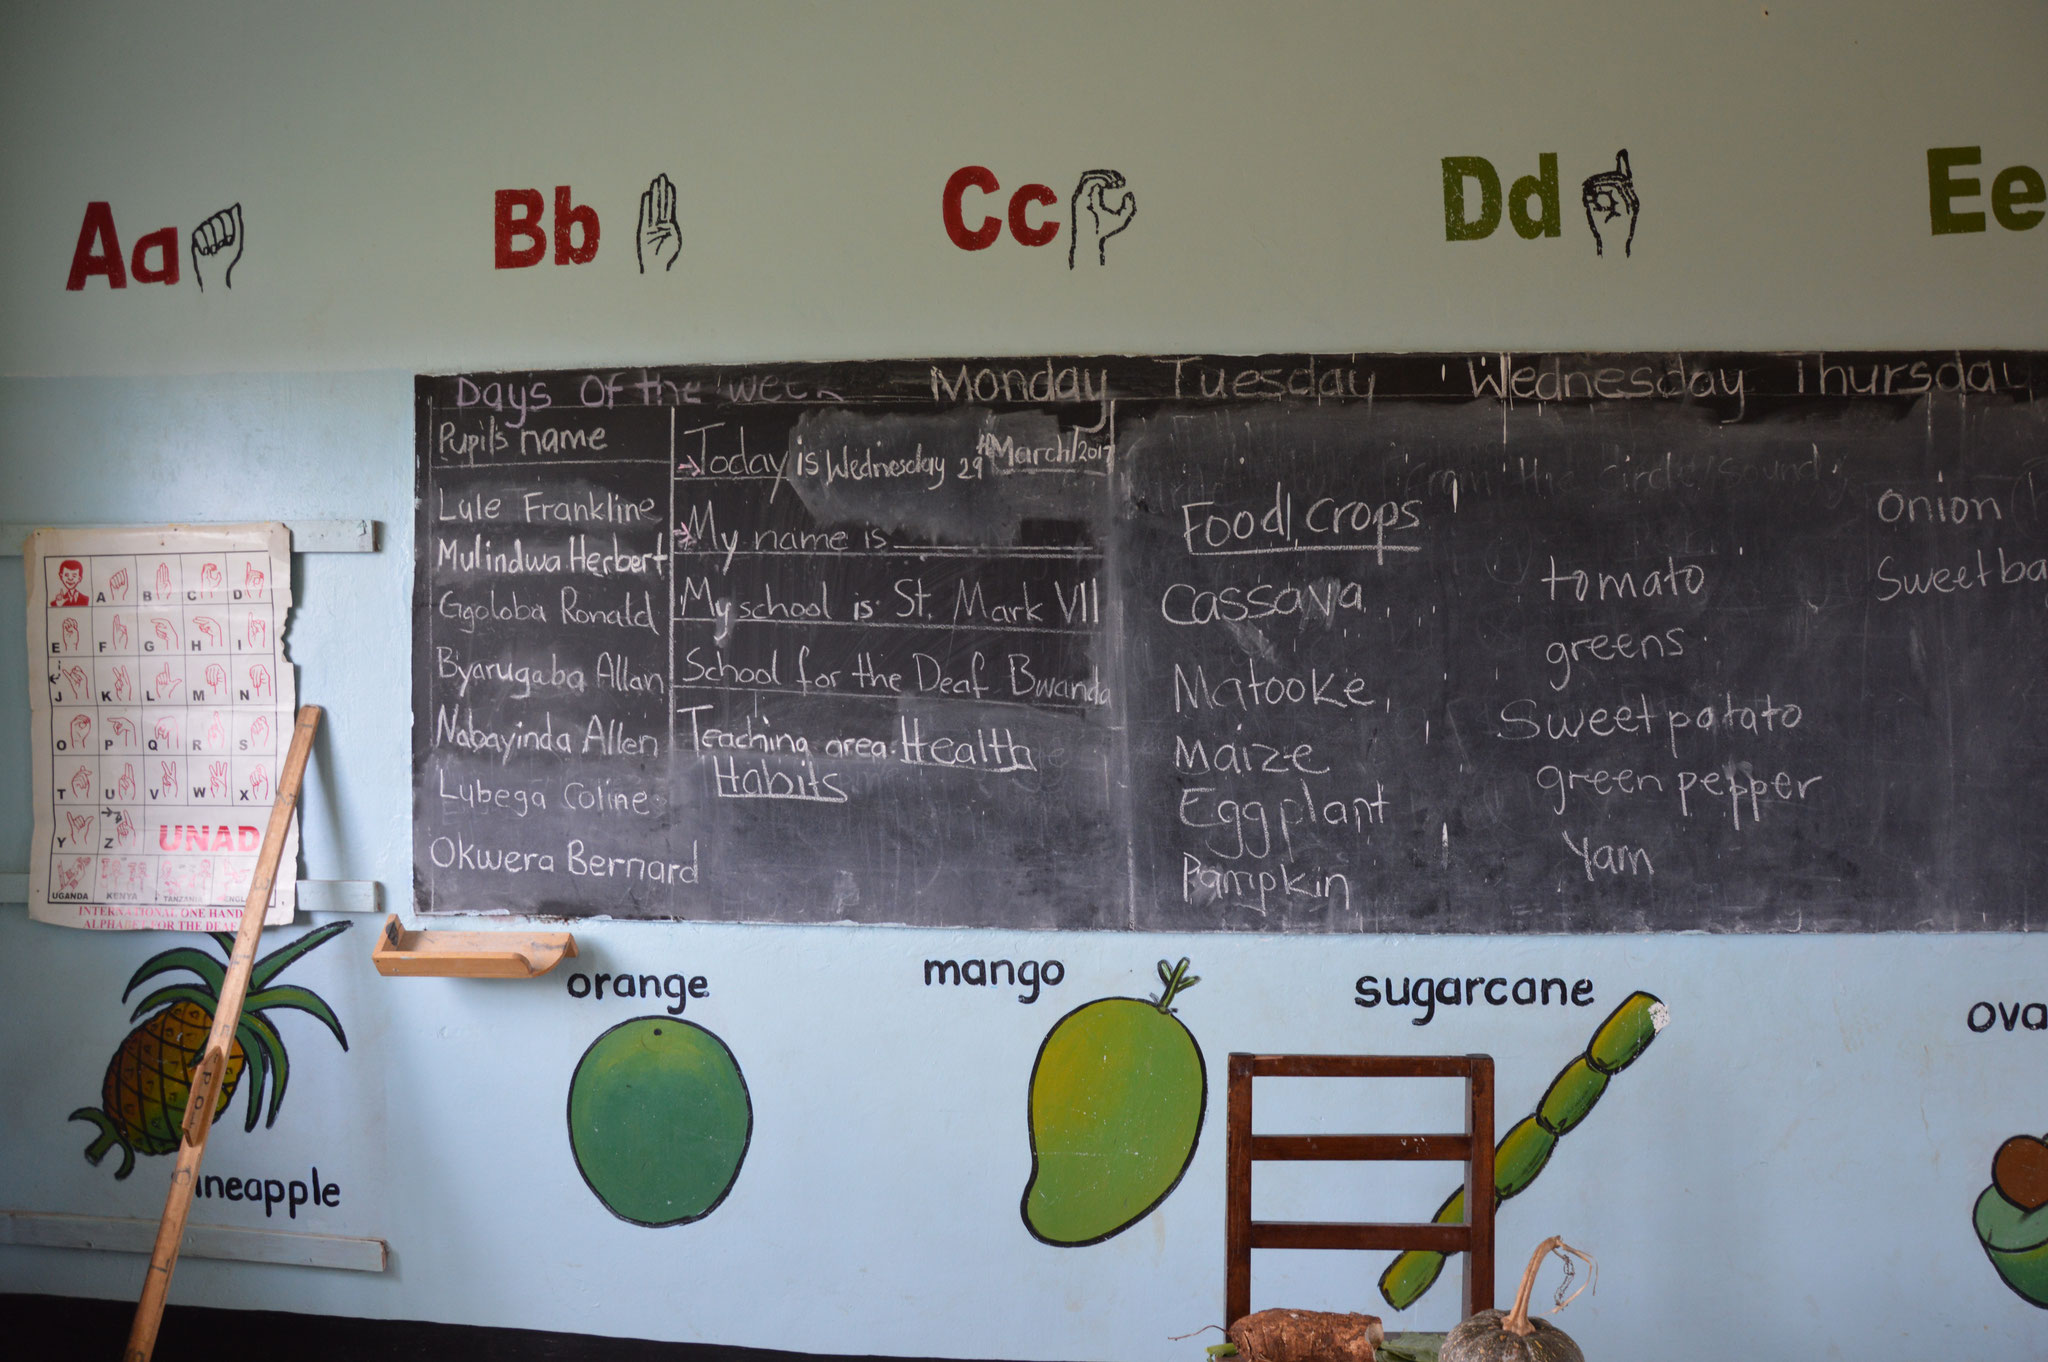 Aa
Bb
Cc
Dd
Ee
Days of the week Monday Tuesday Wednesday Thursday
Pupil's name
Lule Frankline
Mulindwa Herbert
Ggoloba Ronald
Byarugaba Allan
Nabayinda Allen
Lubega Coline
Okwera Bernard
Today is Wednesday 29th March/2017
My name is
My school is St. Mark VII
School for the Deaf Bwanda
Teaching area: Health
Habits
Food crops
Cassava
Matooke
Maize
Egg plant
Pampkin
tomato
greens
Sweet potato
green pepper
Yam
onion
Sweet ba
A B C D
E F G H I
J K L M N
O P Q R S
T U V W X
Y Z UNAD
UGANDA KENYA TANZANIA
INTERNATIONAL ONE HAND
ALPHABET FOR THE DEAF
ineapple
orange
mango
sugarcane
ova